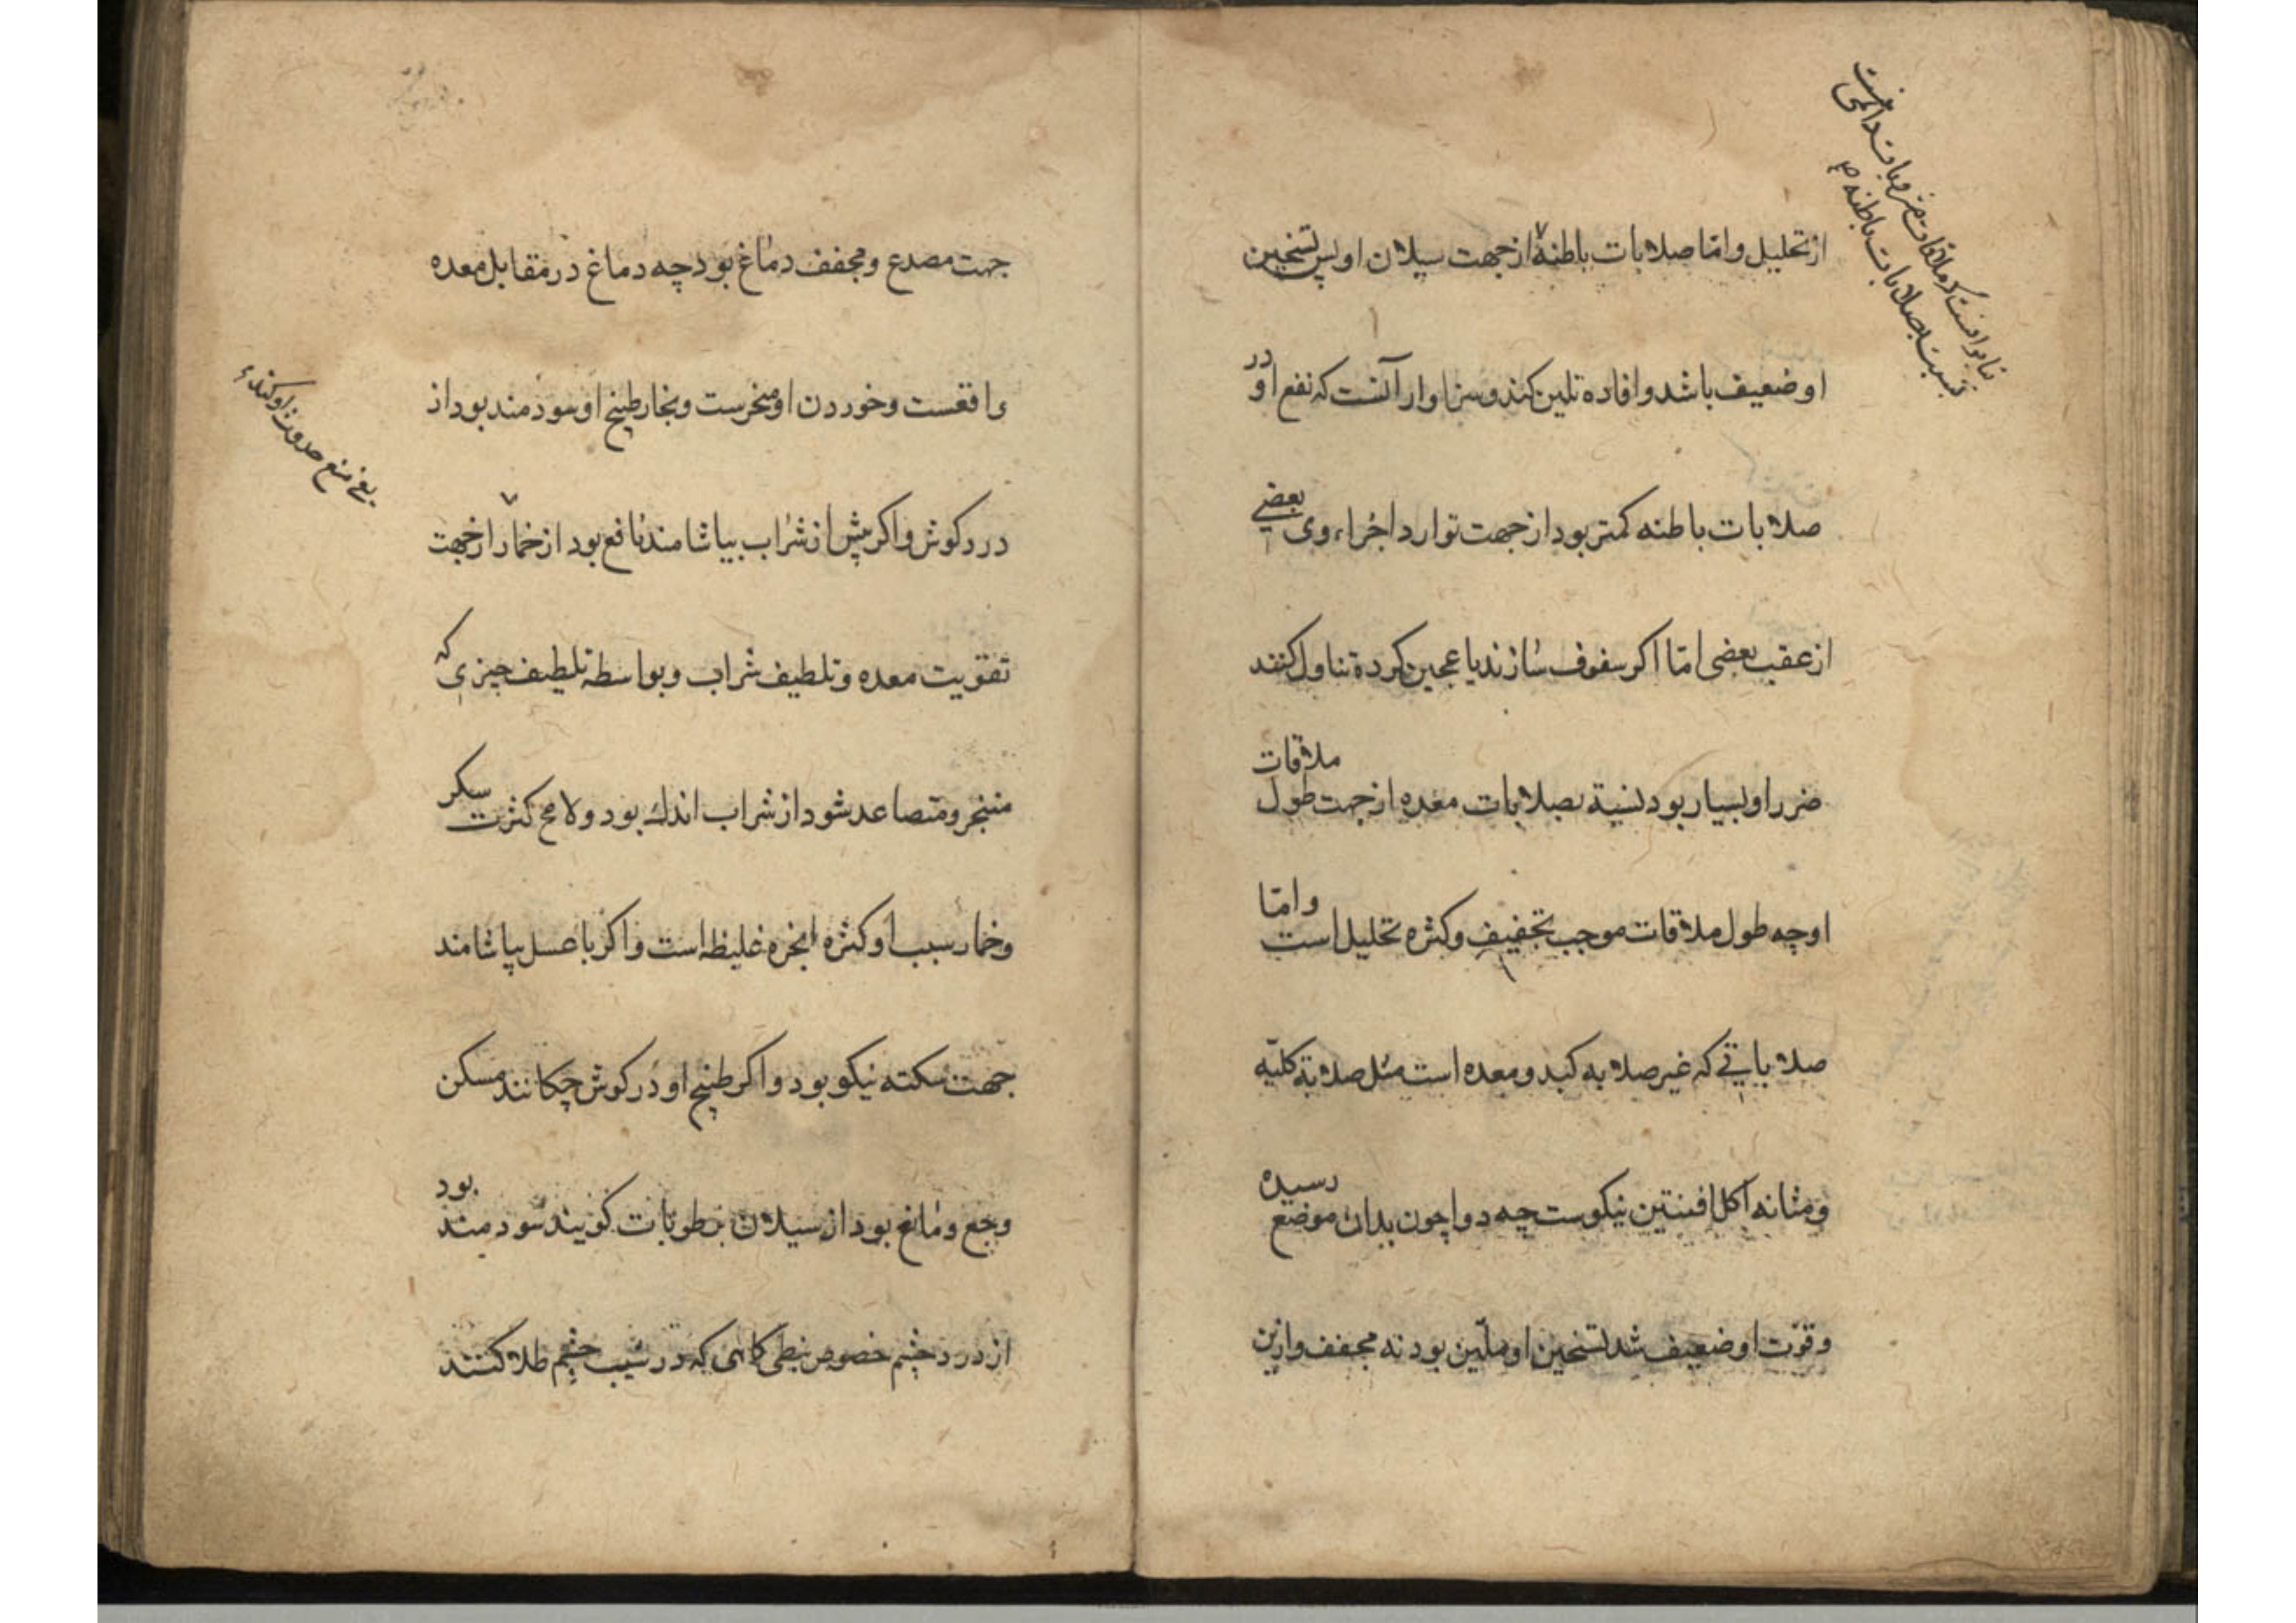 از تحلیل و امّا صلابات باطنه از جهت سیلان او پس تسخین
او ضعیف باشد و افاده تلین کند و سزاوار آنست که نفع او در
صلابات باطنه کمتر بود از جهت توارد اجزاء وی بعضی
از عقب بعضی امّا اکر سفوف سازند یا عجین کرده تناول کنند
ضرر او بسیار بود نسبة بصلابات معده از جهت طول ملاقات
او چه طول ملاقات موجب تجفیف و کثره تحلیل است و امّا
صلاباتی که غیر صلابه کبد و معده است مثل صلابة کلیّه
و مثانه اکل افسنتین نیکوست چه دوا چون بدان موضع رسیده
و قوّت او ضعیف شد تسخین او ملیّن بود نه مجفف و ازین
بنابر آنست که ملاقات
نسبت بصلابات باطنه
جهت مصدع و مجفف دماغ بود چه دماغ در مقابل معده
واقعست و خوردن او مبخرست و بخار طبیخ او سودمند بود از
درد کوش و اکر پیش از شراب بیاشامند نافع بود از خمار از جهت
تقویت معده و تلطیف شراب و بواسطه تلطیف چیزی که
متبخر و متصاعد شود از شراب اندك بود و لامح کثرت سکر
و خمار سبب او کثره ابخره غلیظه است و اکر با عسل بیاشامند
جهت سکته نیکو بود و اکر طبیخ او در کوش چکانند مسکن
وجع و مانع بود از سیلان رطوبات کویند سودمند بود
از درد چشم خصوص نبطی کاهی که در شیب چشم طلا کنند
یعنی منع حدوث او کند